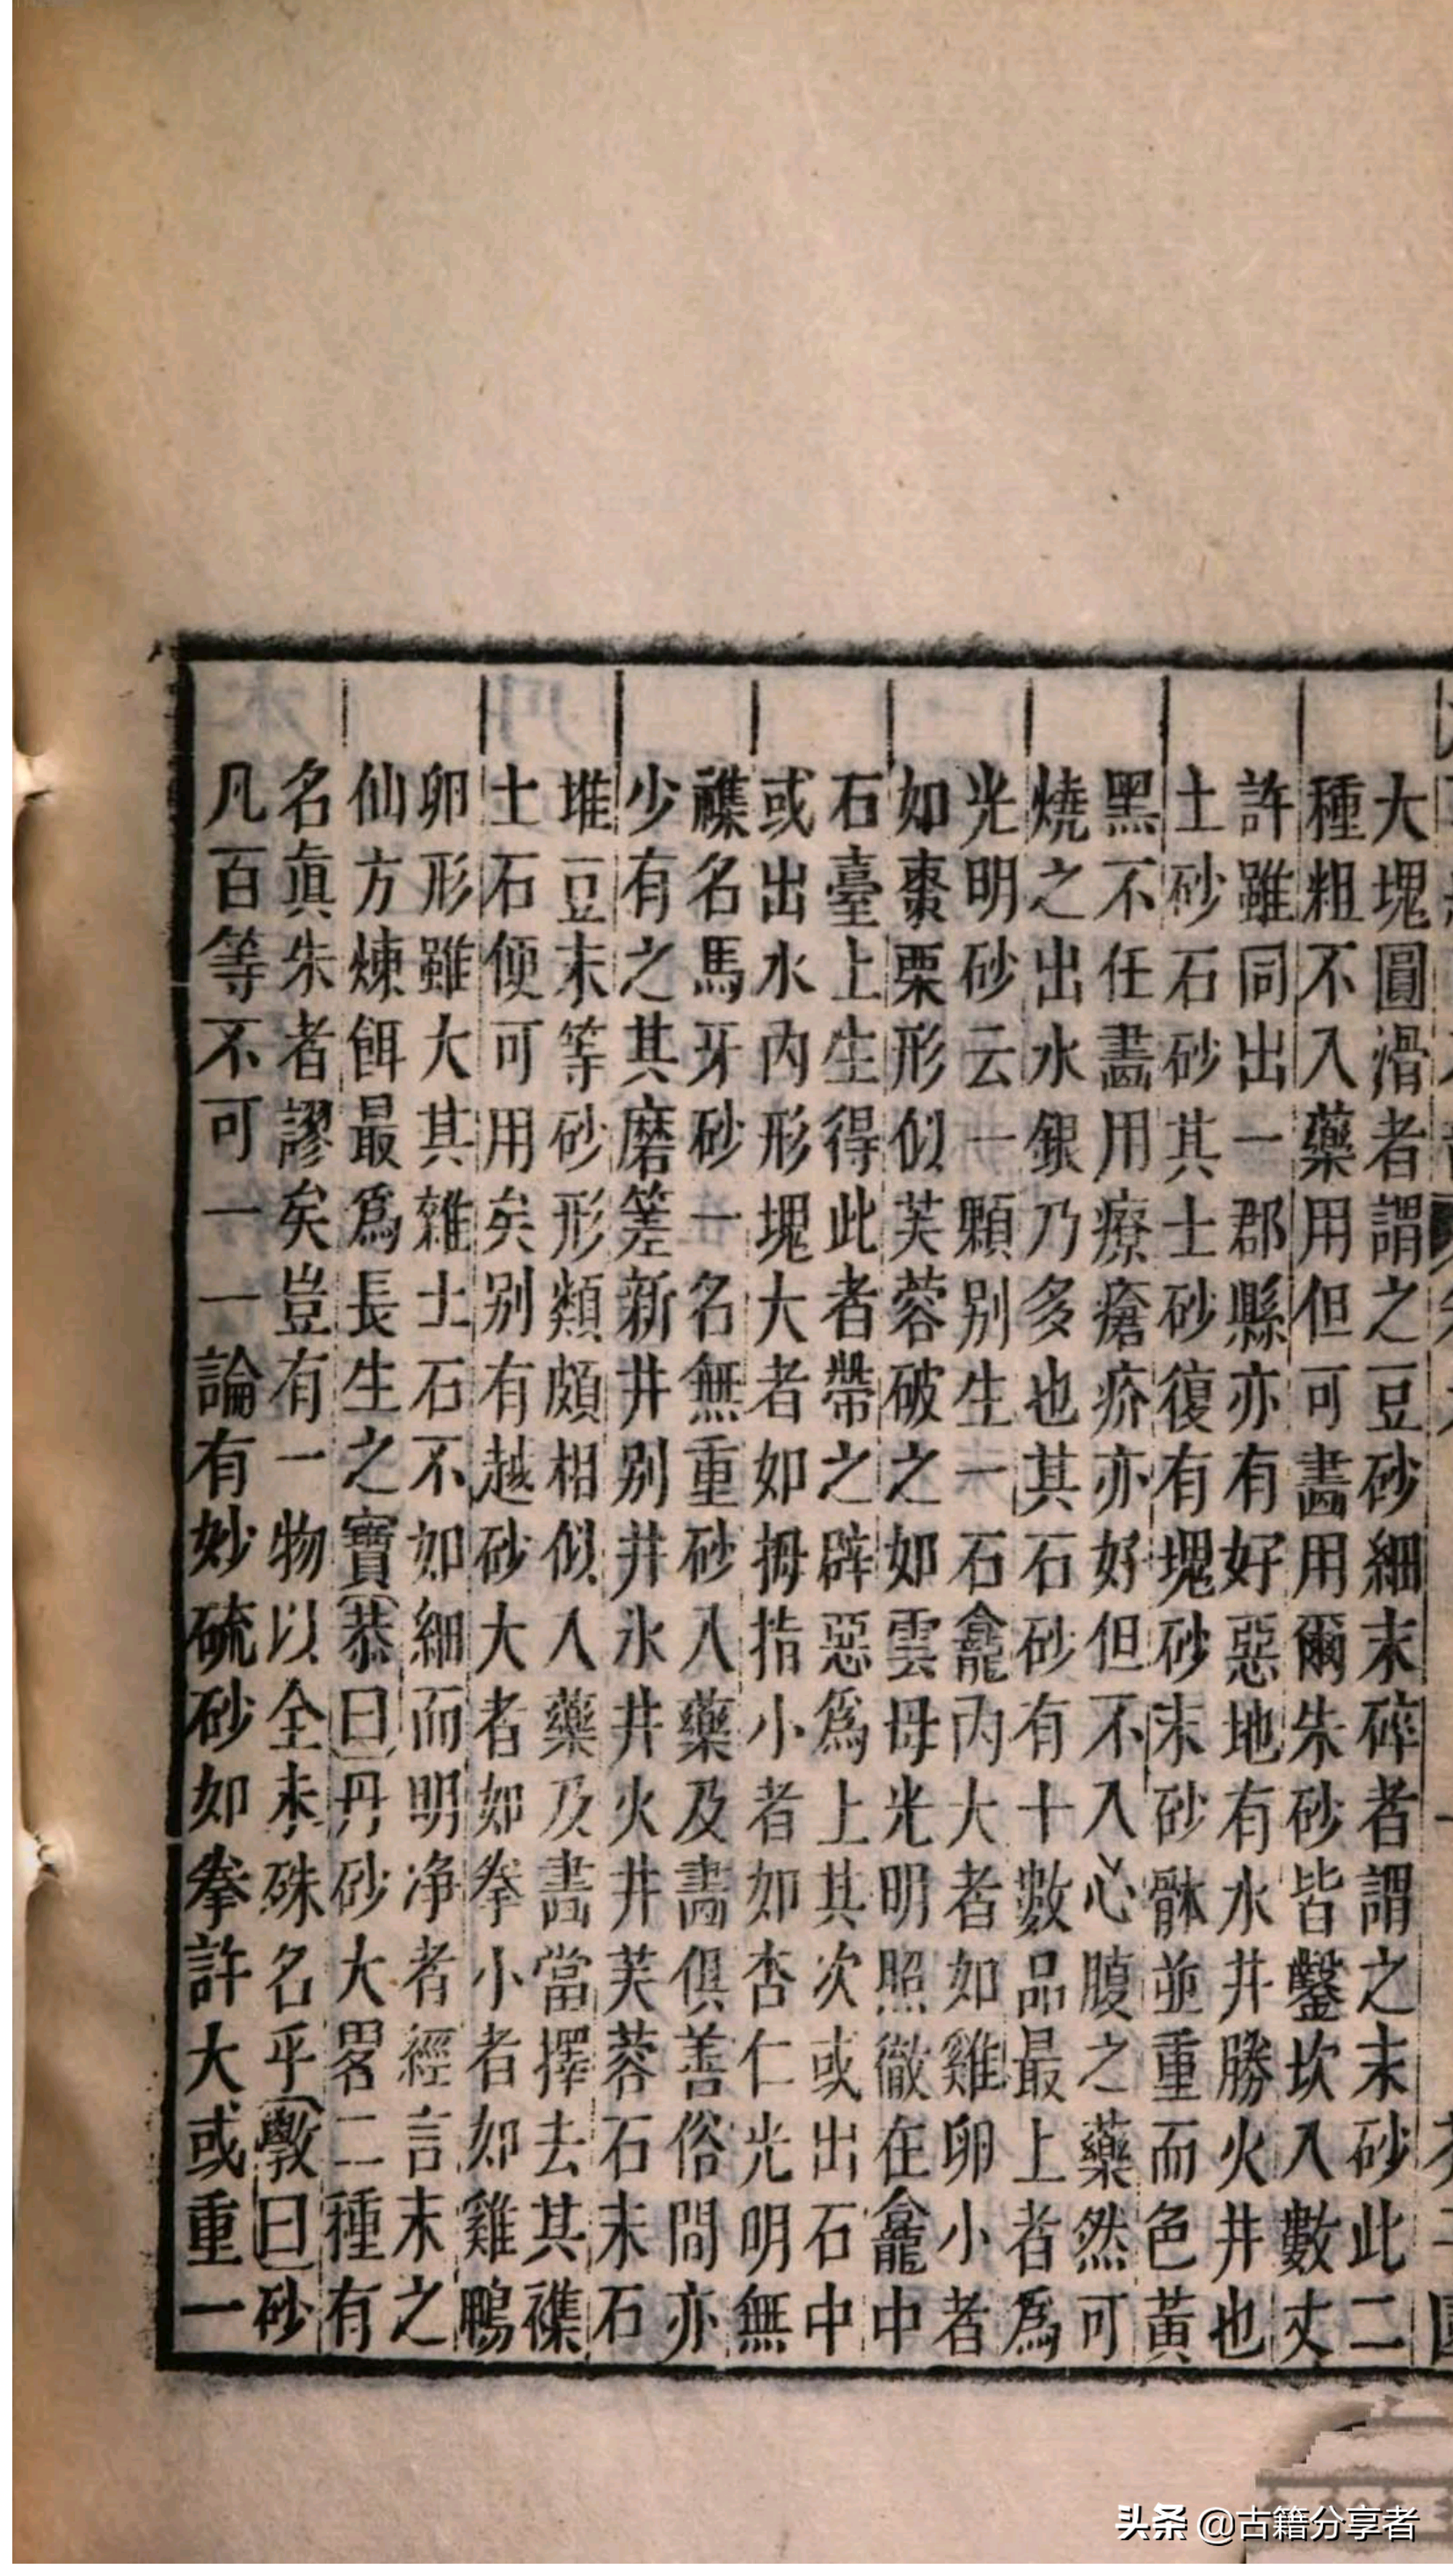 大塊圓滑者謂之豆砂細末碎者謂之末砂此二
種粗不入藥用但可畫用爾朱砂皆鑿坎入數丈
許雖同出一郡縣亦有好惡地有水井勝火井也
土砂石砂其土砂復有塊砂末砂骵並重而色黃
黑不任畫用療瘡疥亦好但不入心腹之藥然可
燒之出水銀乃多也其石砂有十數品最上者爲
光明砂云一顆別生一石龕內大者如雞卵小者
如棗栗形似芙蓉破之如雲母光明照徹在龕中
石臺上生得此者帶之辟惡爲上其次或出石中
或出水內形塊大者如拇指小者如杏仁光明無
襍名馬牙砂一名無重砂入藥及畫俱善俗間亦
少有之其磨䇪新井別井氷井火井芙蓉石末石
堆豆末等砂形類頗相似入藥及畫當擇去其襍
土石便可用矣別有越砂大者如拳小者如雞鴨
卵形雖大其雜土石不如細而明净者經言末之
仙方煉餌最爲長生之寶恭曰丹砂大畧二種有
名眞朱者謬矣豈有一物以全未殊名乎斆曰砂
凡百等不可一一論有妙硫砂如拳許大或重一
头条 @古籍分享者